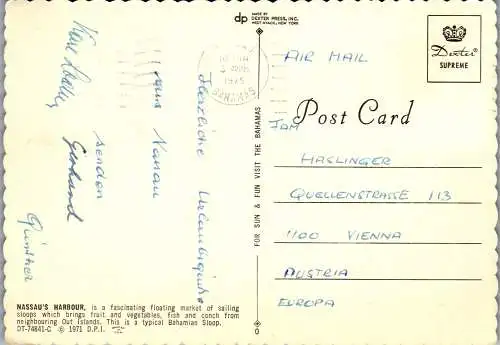 MADE BY
dp DEXTER PRESS, INC.
WEST NYACK, NEW YORK
1975
BAHAMAS
AIR MAIL
Dexter
SUPREME
Post Card
FOR SUN & FUN VISIT THE BAHAMAS
Herzliche Urlaubsgrüße
aus Nassau
senden
Gerhard
Günther
FAM
HASLINGER
QUELLENSTRASSE 113
1100 VIENNA
AUSTRIA
EUROPA
NASSAU'S HARBOUR, is a fascinating floating market of sailing
sloops which brings fruit and vegetables, fish and conch from
neighbouring Out Islands. This is a typical Bahamian Sloop.
DT-74841-C © 1971 D.P.I.